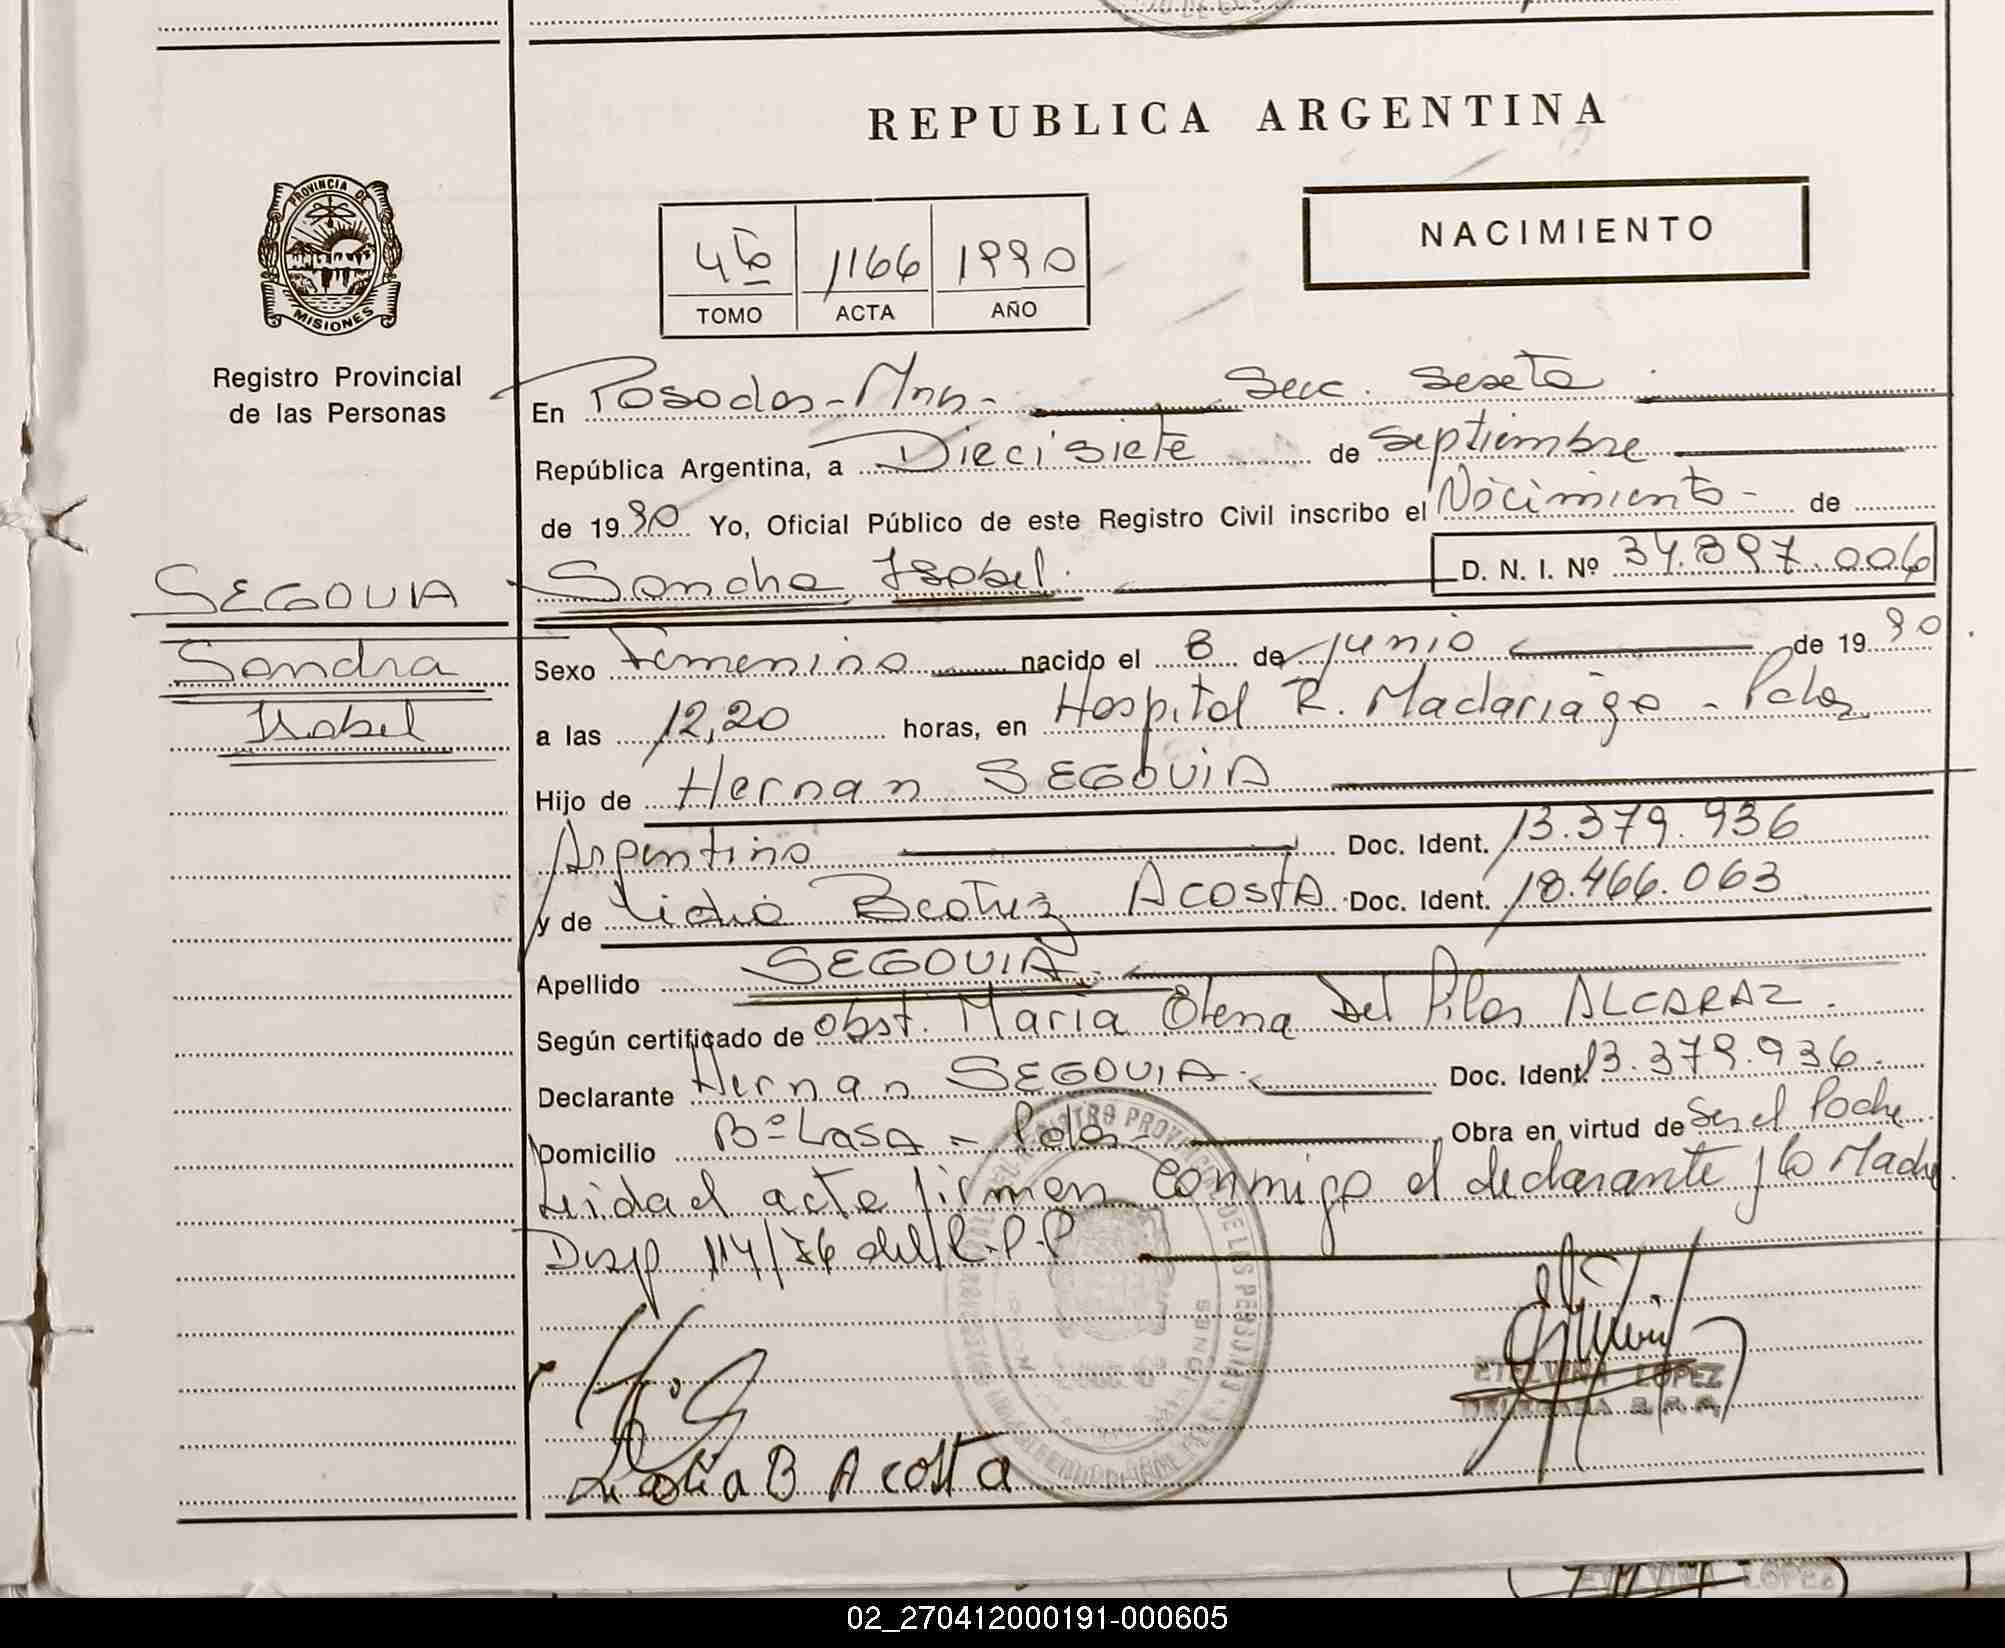 REPUBLICA ARGENTINA
NACIMIENTO
4to 1166 1990
TOMO ACTA AÑO
PROVINCIA DE
MISIONES
Registro Provincial
de las Personas
En Posadas-Mns- Secc. Sexta
República Argentina, a Diecisiete de septiembre
de 1990 Yo, Oficial Público de este Registro Civil inscribo el Nacimiento - de
Sandra Isabel. D. N. I. Nº 34.897.006
SEGOVIA
Sandra
Isabel
Sexo Femenino nacido el 8 de junio de 1990.
a las 12,20 horas, en Hospital R. Madariaga - Pdas
Hijo de Hernan SEGOVIA
Argentino Doc. Ident. 13.379.936
y de Lidia Beatriz Acosta Doc. Ident. 18.466.063
Apellido SEGOVIA.
Según certificado de obst. Maria Elena Del Pilar ALCARAZ.
Declarante Hernan SEGOVIA. Doc. Ident. 13.379.936.
Domicilio Bº Lasa - Pdas- Obra en virtud de Ser el Padre
Leida el acta firman conmigo el declarante y la Madre.
Disp 114/76 del R.P.P
ETELVINA LOPEZ
DELEGADA R.P.P.
Lidia B Acosta
02_270412000191-000605